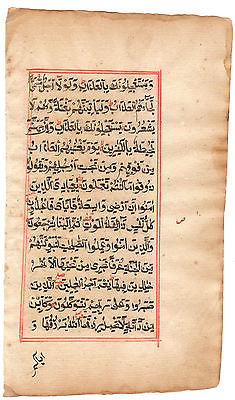 وَيَسْتَعْجِلُونَكَ بِالْعَذَابِ وَلَوْلَا أَجَلٌ مُسَمًّى
لَجَاءَهُمُ الْعَذَابُ وَلَيَأْتِيَنَّهُمْ بَغْتَةً وَهُمْ لَا
يَشْعُرُونَ يَسْتَعْجِلُونَكَ بِالْعَذَابِ وَإِنَّ جَهَنَّمَ
لَمُحِيطَةٌ بِالْكٰفِرِينَ يَوْمَ يَغْشٰهُمُ الْعَذَابُ
مِنْ فَوْقِهِمْ وَمِنْ تَحْتِ أَرْجُلِهِمْ وَيَقُولُ
ذُوقُوا مَا كُنْتُمْ تَعْمَلُونَ يٰعِبَادِيَ الَّذِينَ
آمَنُوا إِنَّ أَرْضِي وَاسِعَةٌ فَإِيَّايَ فَاعْبُدُونِ
كُلُّ نَفْسٍ ذَائِقَةُ الْمَوْتِ ثُمَّ إِلَيْنَا تُرْجَعُونَ
وَالَّذِينَ آمَنُوا وَعَمِلُوا الصّٰلِحٰتِ لَنُبَوِّئَنَّهُمْ
مِنَ الْجَنَّةِ غُرَفًا تَجْرِي مِنْ تَحْتِهَا الْأَنْهٰرُ
خٰلِدِينَ فِيهَا نِعْمَ أَجْرُ الْعٰمِلِينَ الَّذِينَ
صَبَرُوا وَعَلٰى رَبِّهِمْ يَتَوَكَّلُونَ وَكَأَيِّنْ
مِنْ دَابَّةٍ لَا تَحْمِلُ رِزْقَهَا اللّٰهُ يَرْزُقُهَا وَ
إياكم